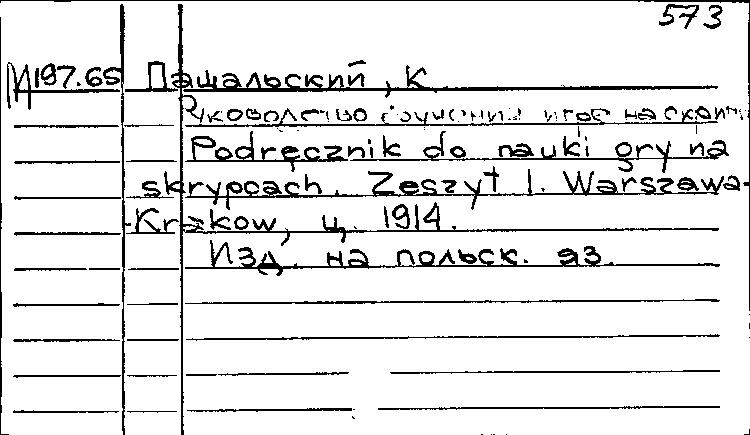 573
И197.65 Пащальский, К
Руководство обучения игре на скрипк
Podręcznik do nauki gry na
skrypcach. Zeszyt I. Warszawa-
-Krakow, ц. 1914.
Изд. на польск. яз.